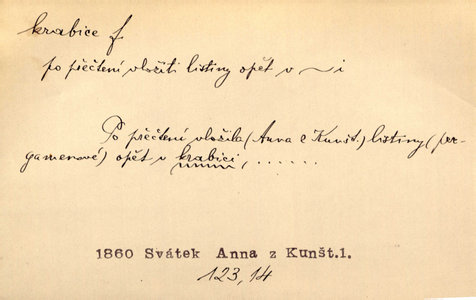 krabice f.
po přečtení vložiti listiny opět v ~i
Po přečtení vložila (Anna z Kunšt.) listiny (per-
gamenové) opět v krabici, ......
1860 Svátek Anna z Kunšt.1.
123,14